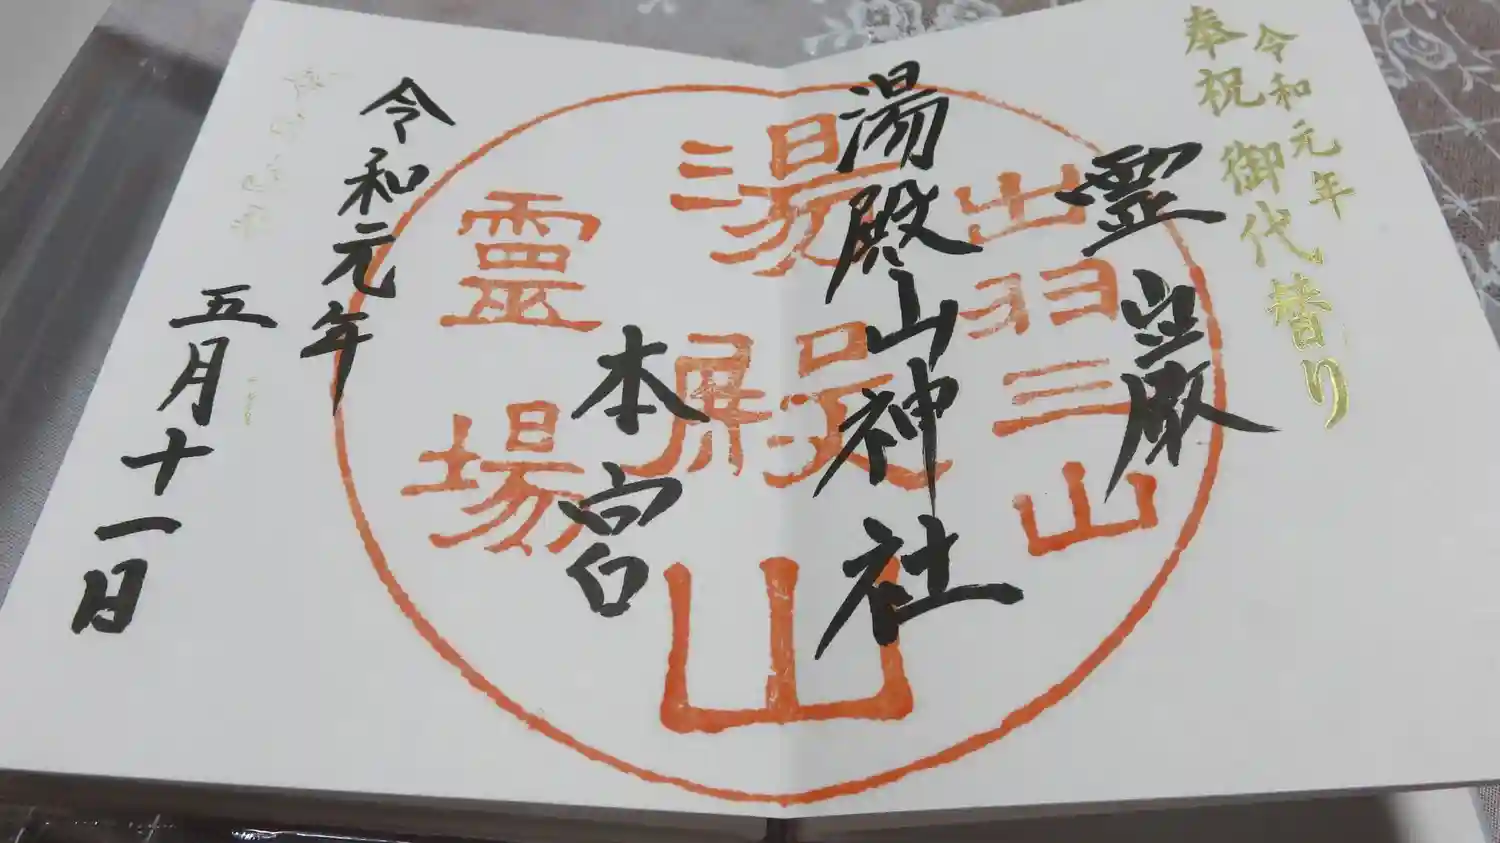 令和元年
奉祝 御代替り
霊巌
湯殿山神社
本宮
令和元年
五月十一日
出羽三山
湯殿山
霊場